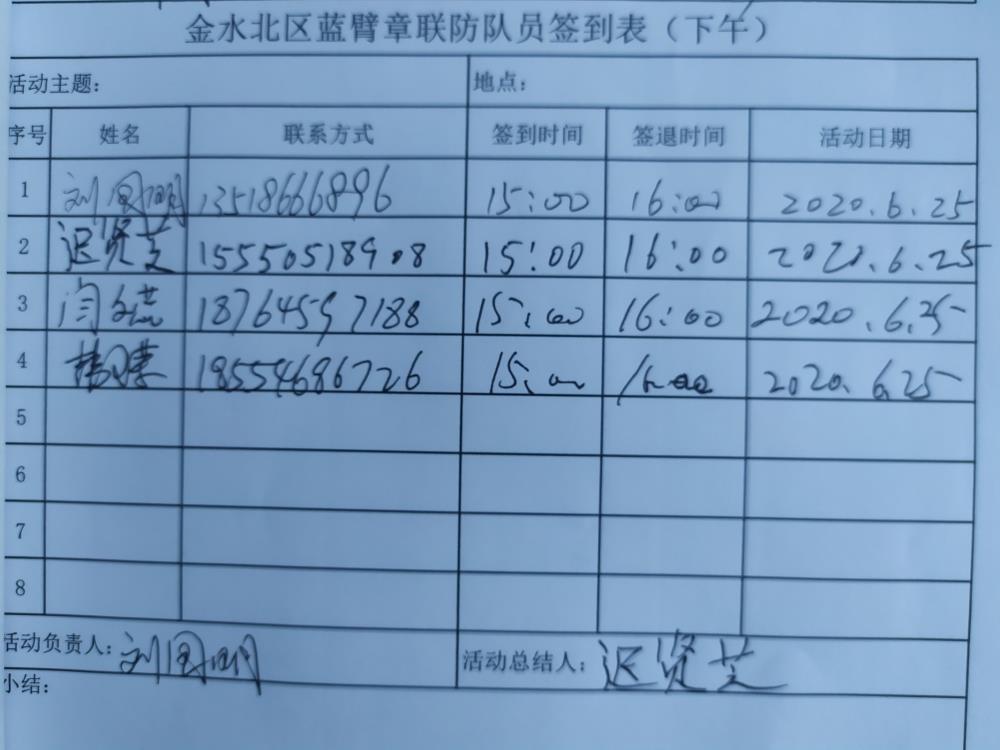 金水北区蓝臂章联防队员签到表（下午）
活动主题： 地点：
序号 姓名 联系方式 签到时间 签退时间 活动日期
1 刘国明 13518666896 15:00 16:00 2020.6.25
2 迟贤芝 15550518908 15:00 16:00 2020.6.25
3 闫 18764597188 15:00 16:00 2020.6.25
4 18554686726 15:00 16:00 2020.6.25
5
6
7
8
活动负责人：刘国明 活动总结人：迟贤芝
小结：